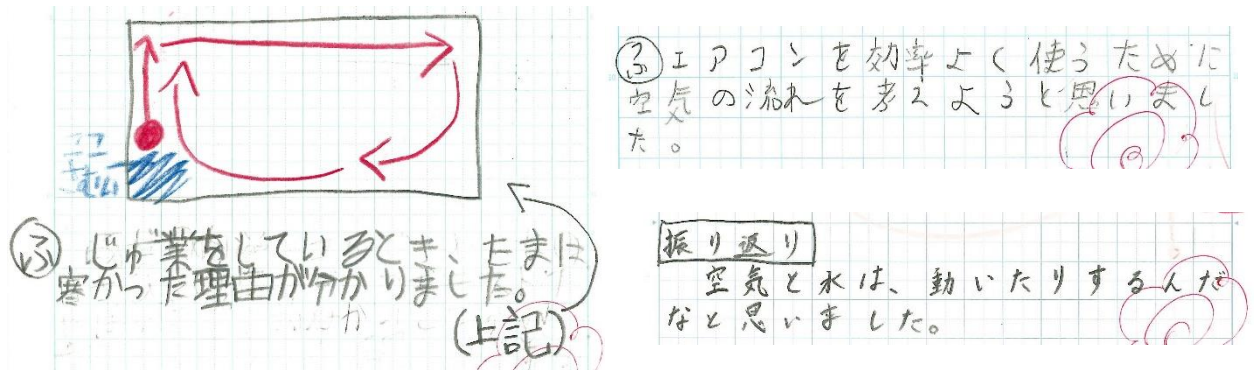 ココ
さむい
ふ じゅ業をしているとき、たまに
寒かった理由が分かりました。
か
(上記)
ふ エアコンを効率よく使うために
空気の流れを考えようと思いまし
た。
振り返り
空気と水は、動いたりするんだ
なと思いました。